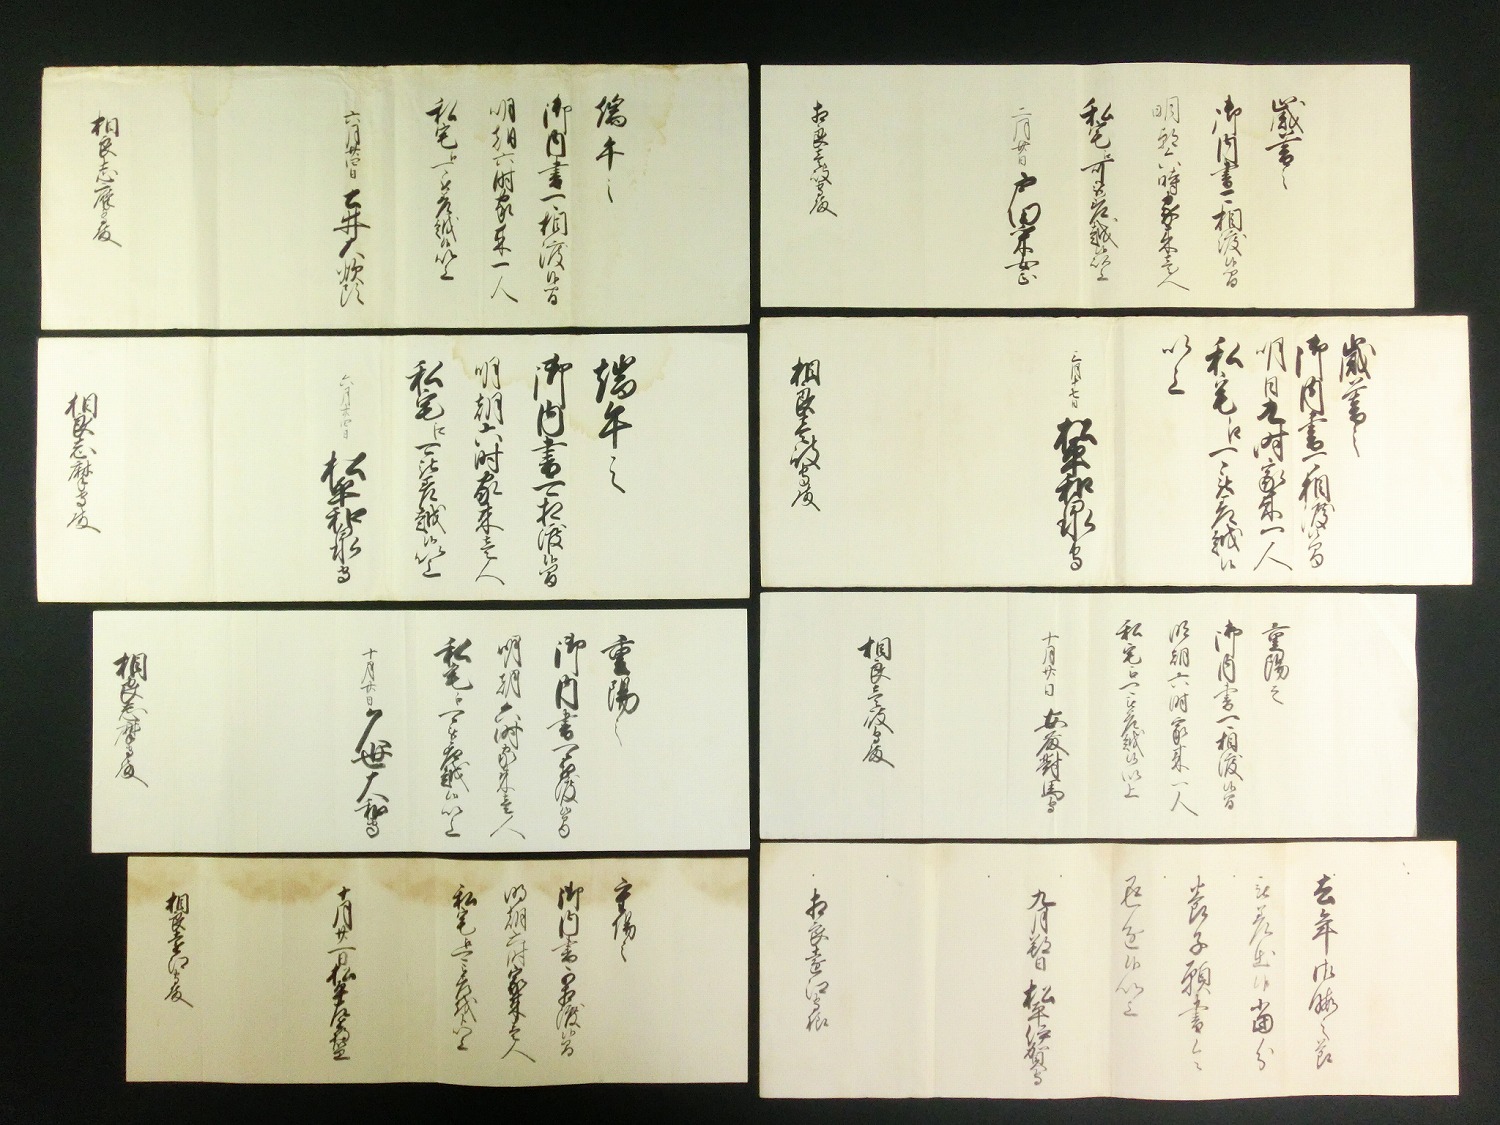 歳暮之
御内書可相渡候間
明朝六時家来壱人
私宅江可被差越候以上
二月廿日 戸田采女正
相良壱岐守殿
歳暮之
御内書可相渡候間
明日九時家来一人
私宅江可被差越候
以上
二月十七日 松平和泉守
相良壱岐守殿
重陽之
御内書可相渡候間
明朝六時家来一人
私宅江可被差越候以上
十月廿日 安藤對馬守
相良壱岐守殿
去年御暇之節
養子願書
九月朔日 松平伊賀守
相良遠江守様
端午之
御内書可相渡候間
明朝六時家来一人
私宅江可被差越候以上
六月廿四日 土井大炊頭
相良志摩守殿
端午之
御内書可相渡候間
明朝六時家来壱人
私宅江可被差越候以上
六月廿四日 松平和泉守
相良志摩守殿
重陽之
御内書可相渡候間
明朝六時家来壱人
私宅江可被差越候以上
十月廿日 久世大和守
相良志摩守殿
重陽之
御内書可相渡候間
明朝六時家来壱人
私宅江可被差越候以上
十月廿一日 松平右京
相良遠江守殿